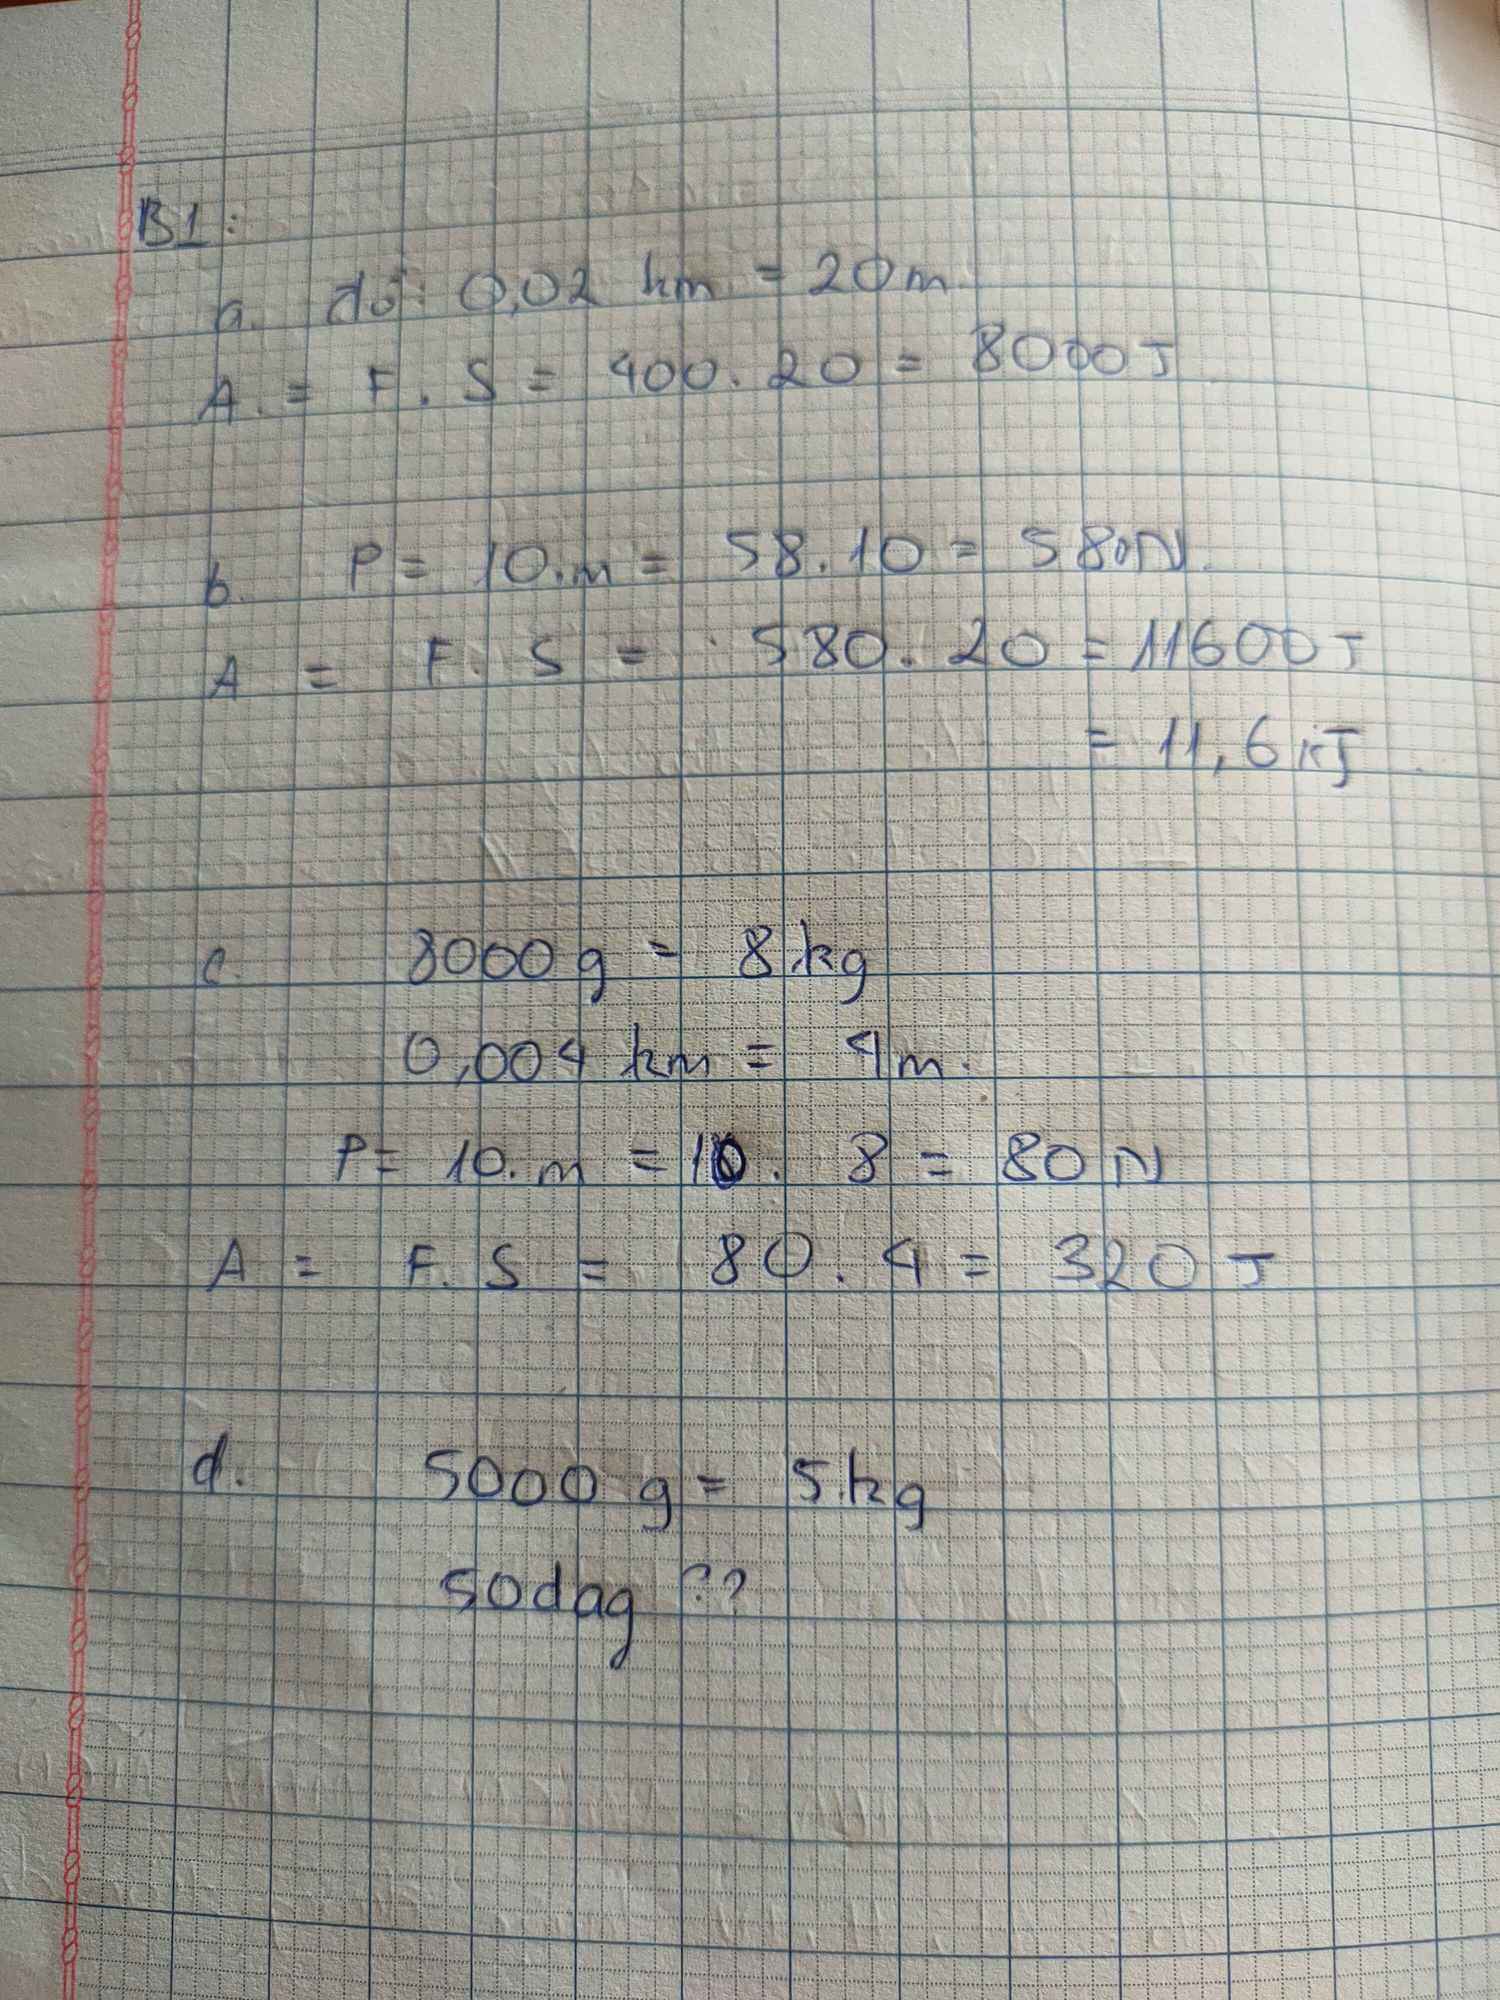 B1:
a. đổi 0,02 km = 20m.
A = F. S = 400. 20 = 8000 J
b. P = 10.m = 58.10 = 580N.
A = F. S = 580. 20 = 11600 J
= 11,6 kJ
c. 8000 g = 8 kg
0,004 km = 4m.
P= 10.m = 10. 8 = 80 N
A = F. S = 80. 4 = 320 J
d. 5000 g = 5.kg
50dag ??